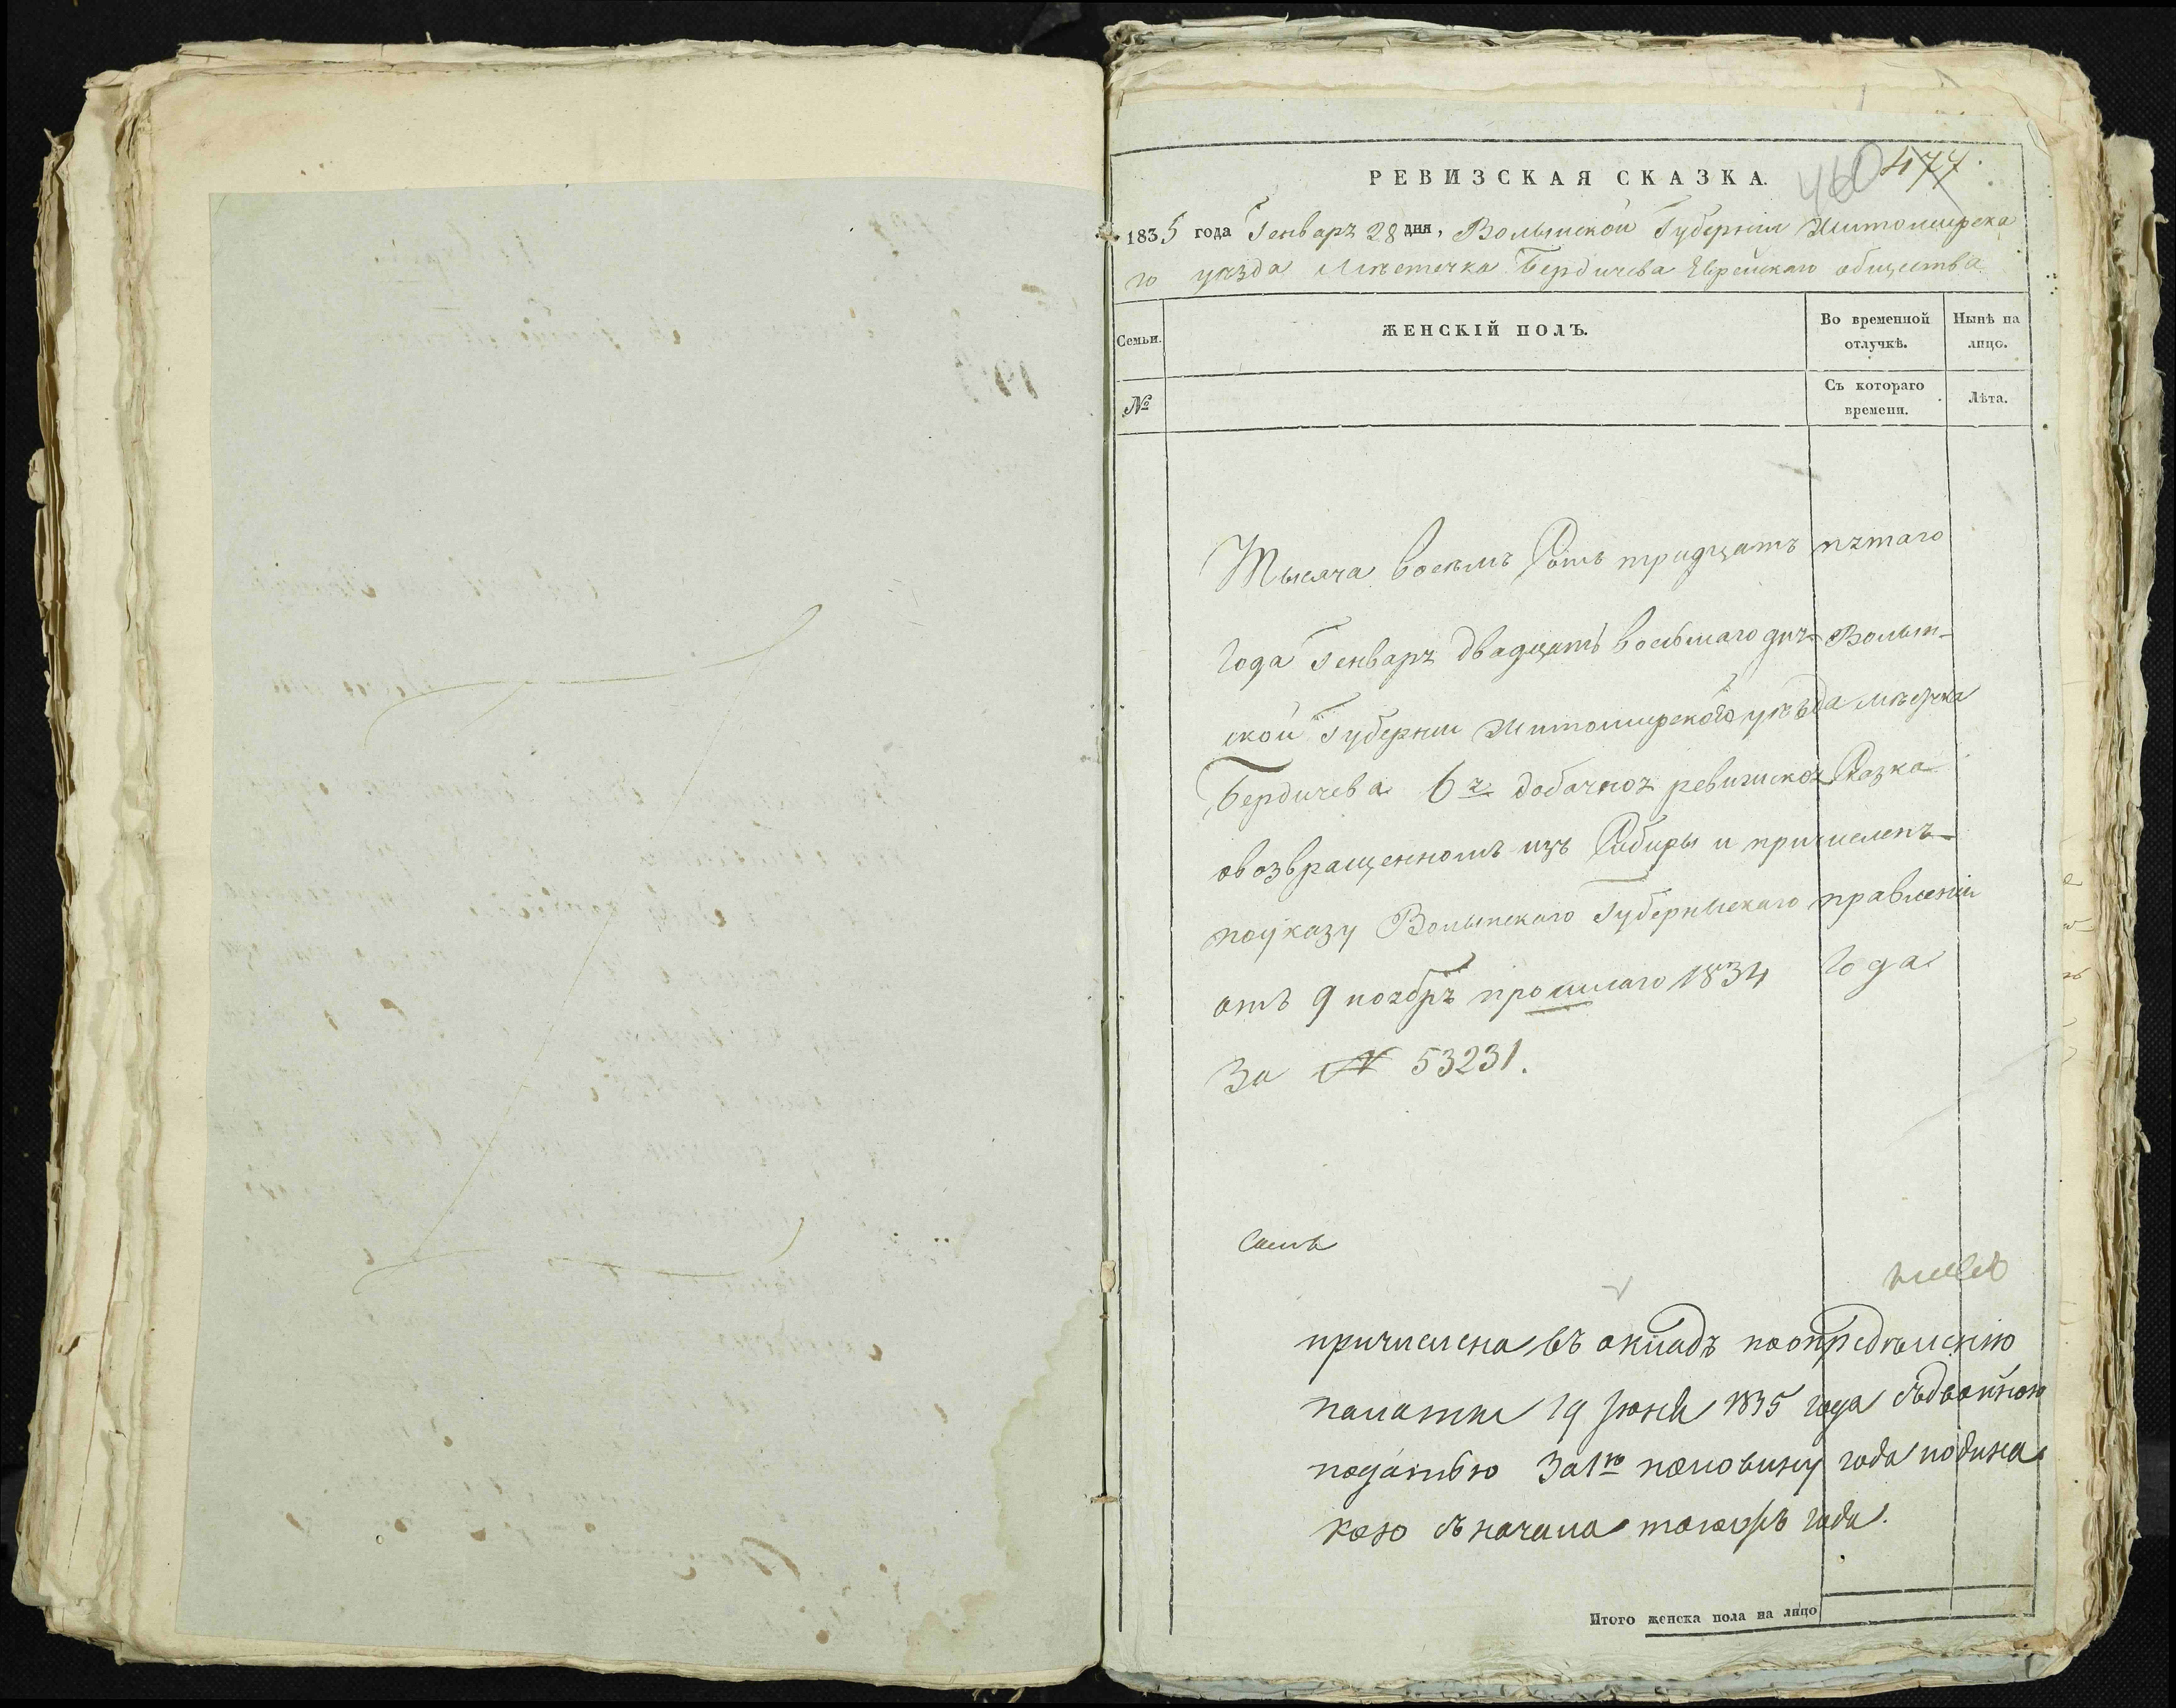 РЕВИЗСКАЯ СКАЗКА.
460 477
1835 года Генваря 28 дня, Волынской Губерніи Житомирска
го уѣзда Мѣстечка Бердичева Еврейскаго общества
Семьи.
ЖЕНСКІЙ ПОЛЪ.
Во временной отлучкѣ.
Нынѣ на лицо.
№
Съ котораго времени.
Лѣта.
Тысяча восемъ Сотъ тридцать пятаго
Года Генваря двадцать восьмаго дня Волын-
ской Губерніи Житомирского уѣзда мѣстечка
Бердичева 6я добачноя ревизскоя Сказка
овозвращенномъ изъ Сибиры и причислен-
поуказу Волынскаго Губернскаго правленія
отъ 9 ноября прошлаго 1834 Года
За № 53231.
причислена въ окладъ поопредѣленію
палаты 19 Іюня 1835 года съдвойною
податью За 1ю половину года
кою съ начала тогожъ года.
Итого женска пола на лицо